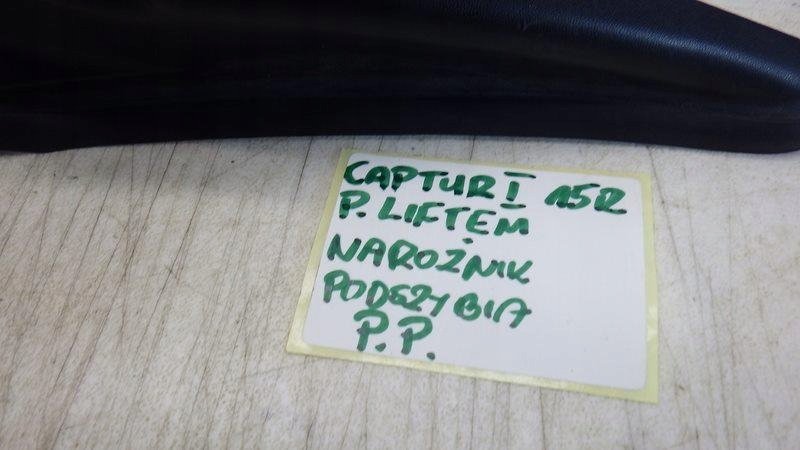 CAPTUR I 15R
P. LIFTEM
NAROŻNIK
PODSZYBIA
P.P.